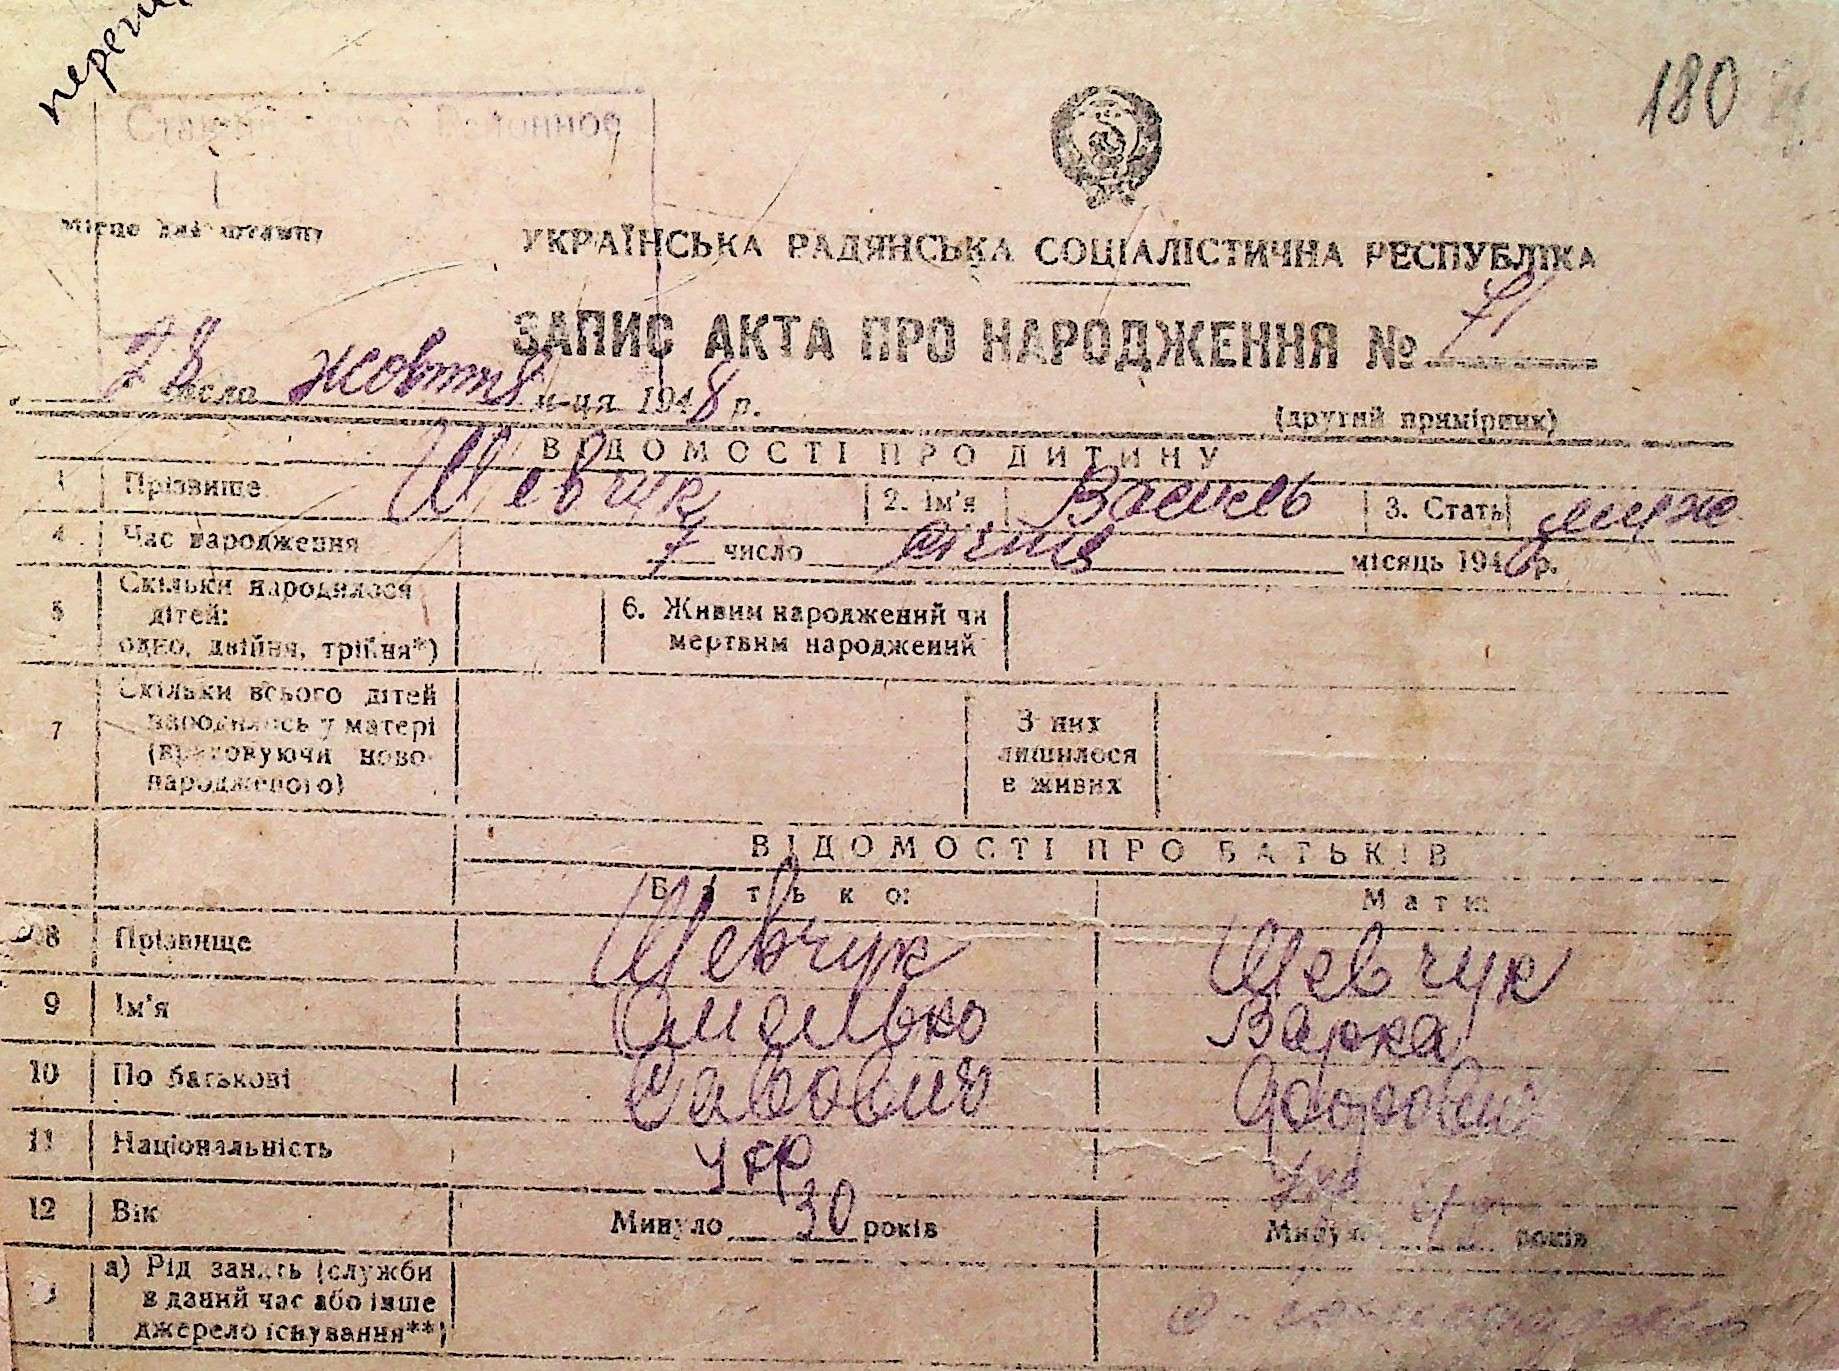 180
УКРАЇНСЬКА РАДЯНСЬКА СОЦІАЛІСТИЧНА РЕСПУБЛІКА
місце для штампу
ЗАПИС АКТА ПРО НАРОДЖЕННЯ № 71
28 числа жовтня м-ця 1948 р.
(другий примірник)
ВІДОМОСТІ ПРО ДИТИНУ
1 Прізвище Шевчук 2. Ім'я Василь 3. Стать муж
4 Час народження 7 число січня місяць 1948 р.
5 Скільки народилося
дітей:
одно, двійня, трійня*)
6. Живим народжений чи
мертвим народжений
7 Скільки всього дітей
народилось у матері
(враховуючи ново-
народженого)
З них
лишилося
в живих
ВІДОМОСТІ ПРО БАТЬКІВ
Батько: Мати:
8 Прізвище Шевчук Шевчук
9 Ім'я Омелько Варка
10 По батькові Савович
11 Національність укр укр
12 Вік Минуло 30 років Минуло років
а) Рід занять (служби
в даний час або інше
джерело існування**)